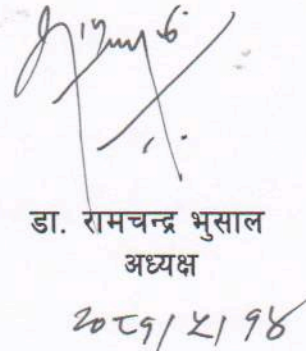 डा. रामचन्द्र भुसाल
अध्यक्ष
२०८१/५/१४